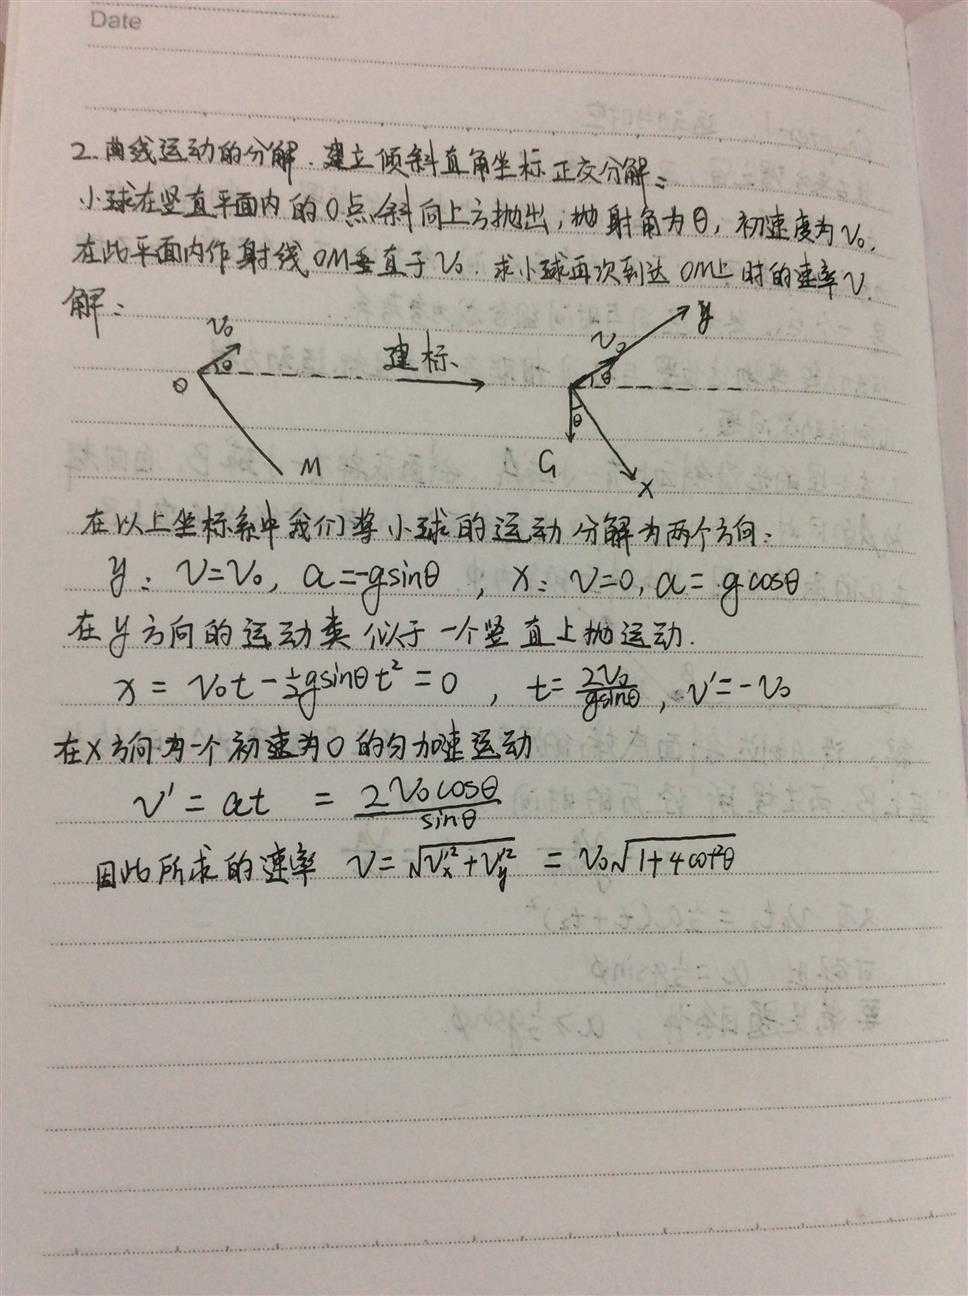 Date
2. 曲线运动的分解. 建立倾斜直角坐标正交分解:
小球在竖直平面内的O点斜向上方抛出, 抛射角为θ, 初速度为V₀.
在此平面内作射线OM垂直于V₀. 求小球再次到达OM上时的速率V.
解:
V₀ θ O M
建标
V₀ y θ θ G x
在以上坐标系中我们将小球的运动分解为两个方向:
y: V=V₀, a=-gsinθ ; x: V=0, a=gcosθ
在y方向的运动类似于一个竖直上抛运动.
x = V₀t - ½gsinθt² = 0 , t = 2V₀/gsinθ , V' = -V₀
在x方向为一个初速为0的匀加速运动
V' = at = 2V₀cosθ/sinθ
因此所求的速率 V = √(Vx'² + Vy'²) = V₀√(1+4cot²θ)